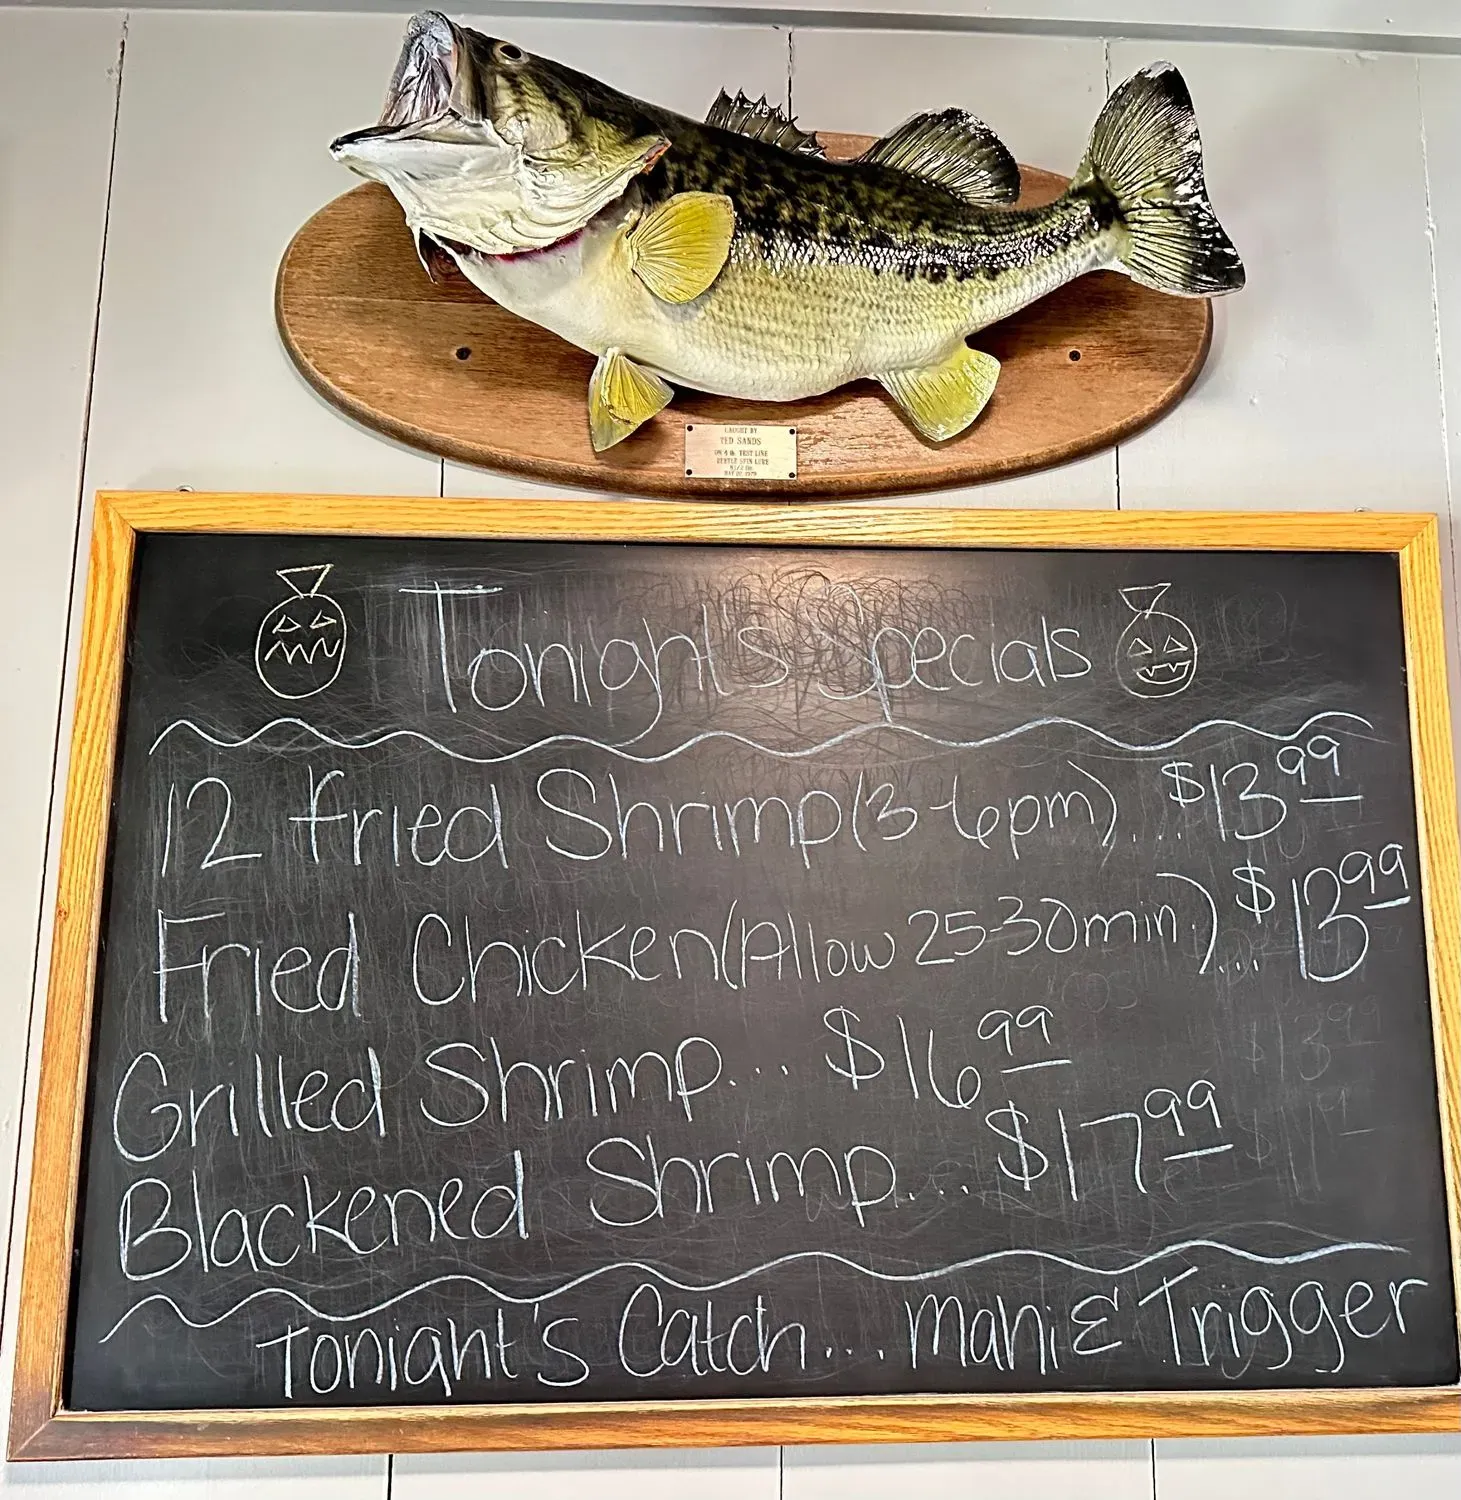 CAUGHT BY
TED SANDS
ON 4 lb. TEST LINE
BEETLE SPIN LURE
MAY 1979
Tonight's Specials
12 fried Shrimp (3-6pm)... $13.99
Fried Chicken (Allow 25-30 min.)... $13.99
Grilled Shrimp... $16.99
Blackened Shrimp... $17.99
Tonight's Catch... Mahi & Trigger